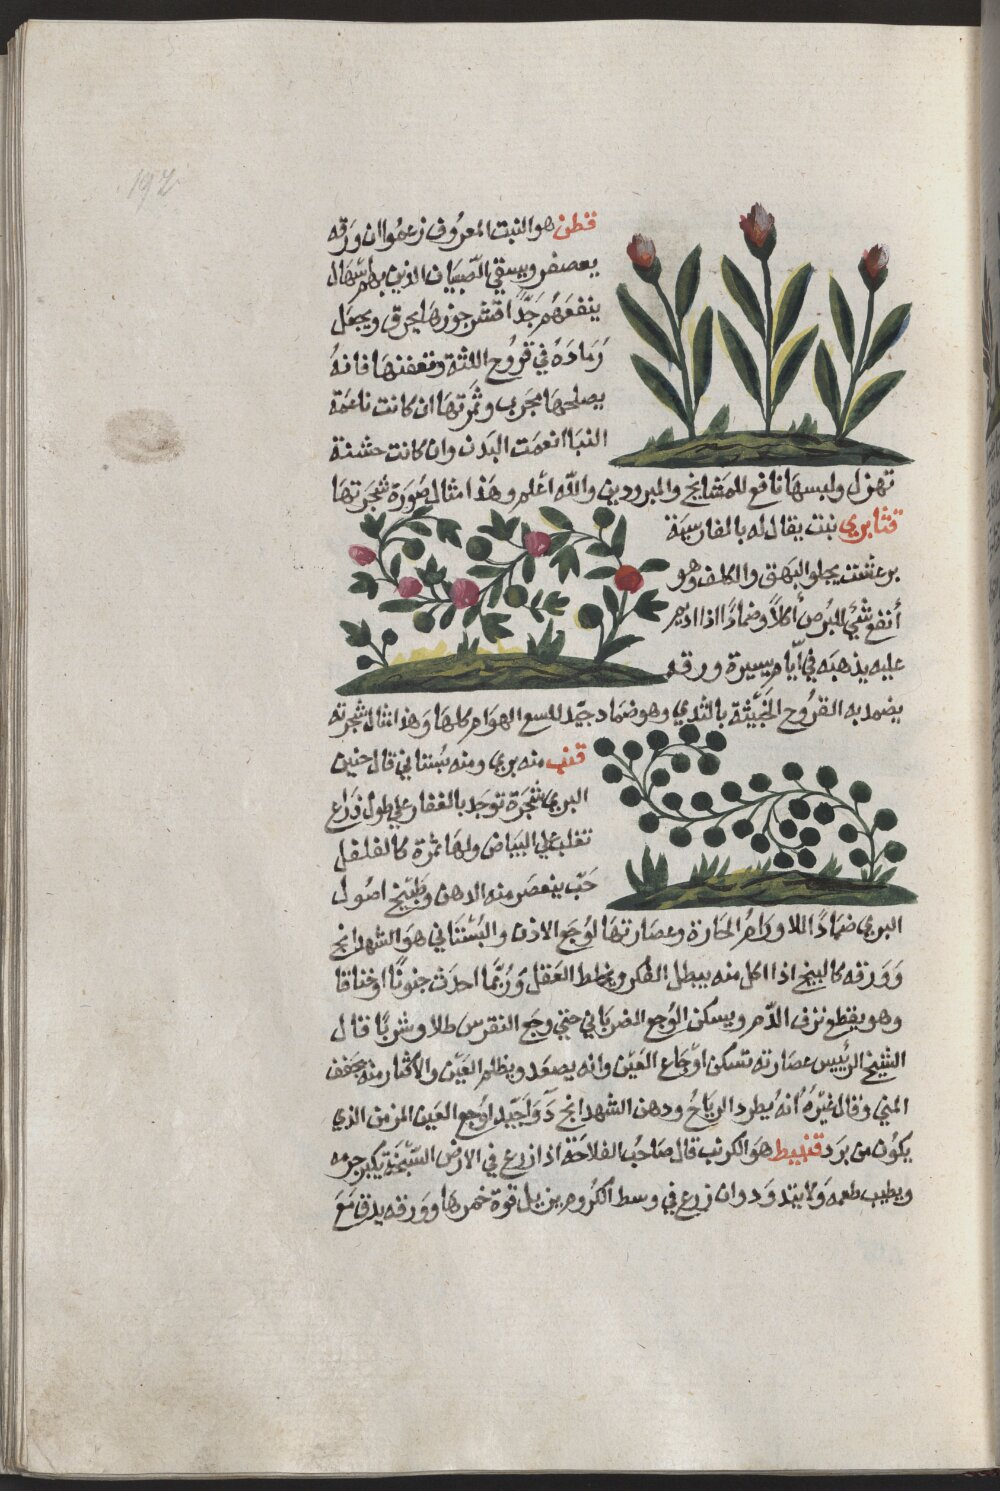 192
قطن هو النبت المعروف زعموا ان ورقه
يعصفر ويسقي الصّبيان الذين بهم اسهال
ينفعهُم جَدًّا قشر جوزها يحرق ويجعل
رُمادَهُ في قروُح اللثة وتعفنهَا فانهُ
يصلحهَا مجرب وثَمرتهَا ان كانت ناعمَة
النبَا انعمَت البدَن وان كانت خشنة
تهزل ولبسهَا نافع للمشَايخ والمبرودين والله اعْلم وهَذا مثَال صَورَة شجَرتهَا
قثابري نبت يقال له بالفارسيّة
برعشت يجلو البَهَق والكلف وهو
أنفع شئي للبرَص أكلاً وضمادًا اذا اديم
عليه يذهبَه في أيّام يسيرة وورقه
يضمد به القروُح الخَبيثة بالثدي وهو ضمَاد جيّد للسع الهوَام كلهَا وَهذا مثَال شجرَته
قنب منه بري ومنه بُستاني قال حنين
البري شجَرَة توجَد بالقفار علي طول ذرَاع
تغلب علي البيَاض ولهَا ثمرَة كالفلفل
حَبّ ينعصَر منه الدهن وطَبيخ اصُول
البري ضمَادًا للاورَام الحَارَة وعصَارتهَا لوَجَع الاذن والبُسْتَاني هوَ الشهدانج
وَوَرقه كالبنج اذا اكل منه يبطل الفكر ويخلط العَقل وَرُبَّما احدَث جنونًا او خناقا
وهو يقطع نزف الدّم ويسكن الوَجع الضربَاني حتي وجَع النقرس طلا وشربًا قال
الشيخ الرئيس عصَارته تسكن اوْجَاع العَين وانه يصعَد ويظلم العَيْن والاكثار منه يجَفف
المني وقال غيْرهُ أنهُ يطرد الريَاحُ ودهن الشهدانج دَوَا جَيّد لوَجع العَين المزمن الذي
يكوُن من برَد قنبيط هوَ الكرنب قال صَاحبُ الفلاحَة اذا زرع في الارض السّبخَة يكبر جرمه
ويطيب طعمه وَلا يتدوَد وان زرع في وسط الكُروم يزيل قوة خمرهَا ووَرقه يدق مَعَ